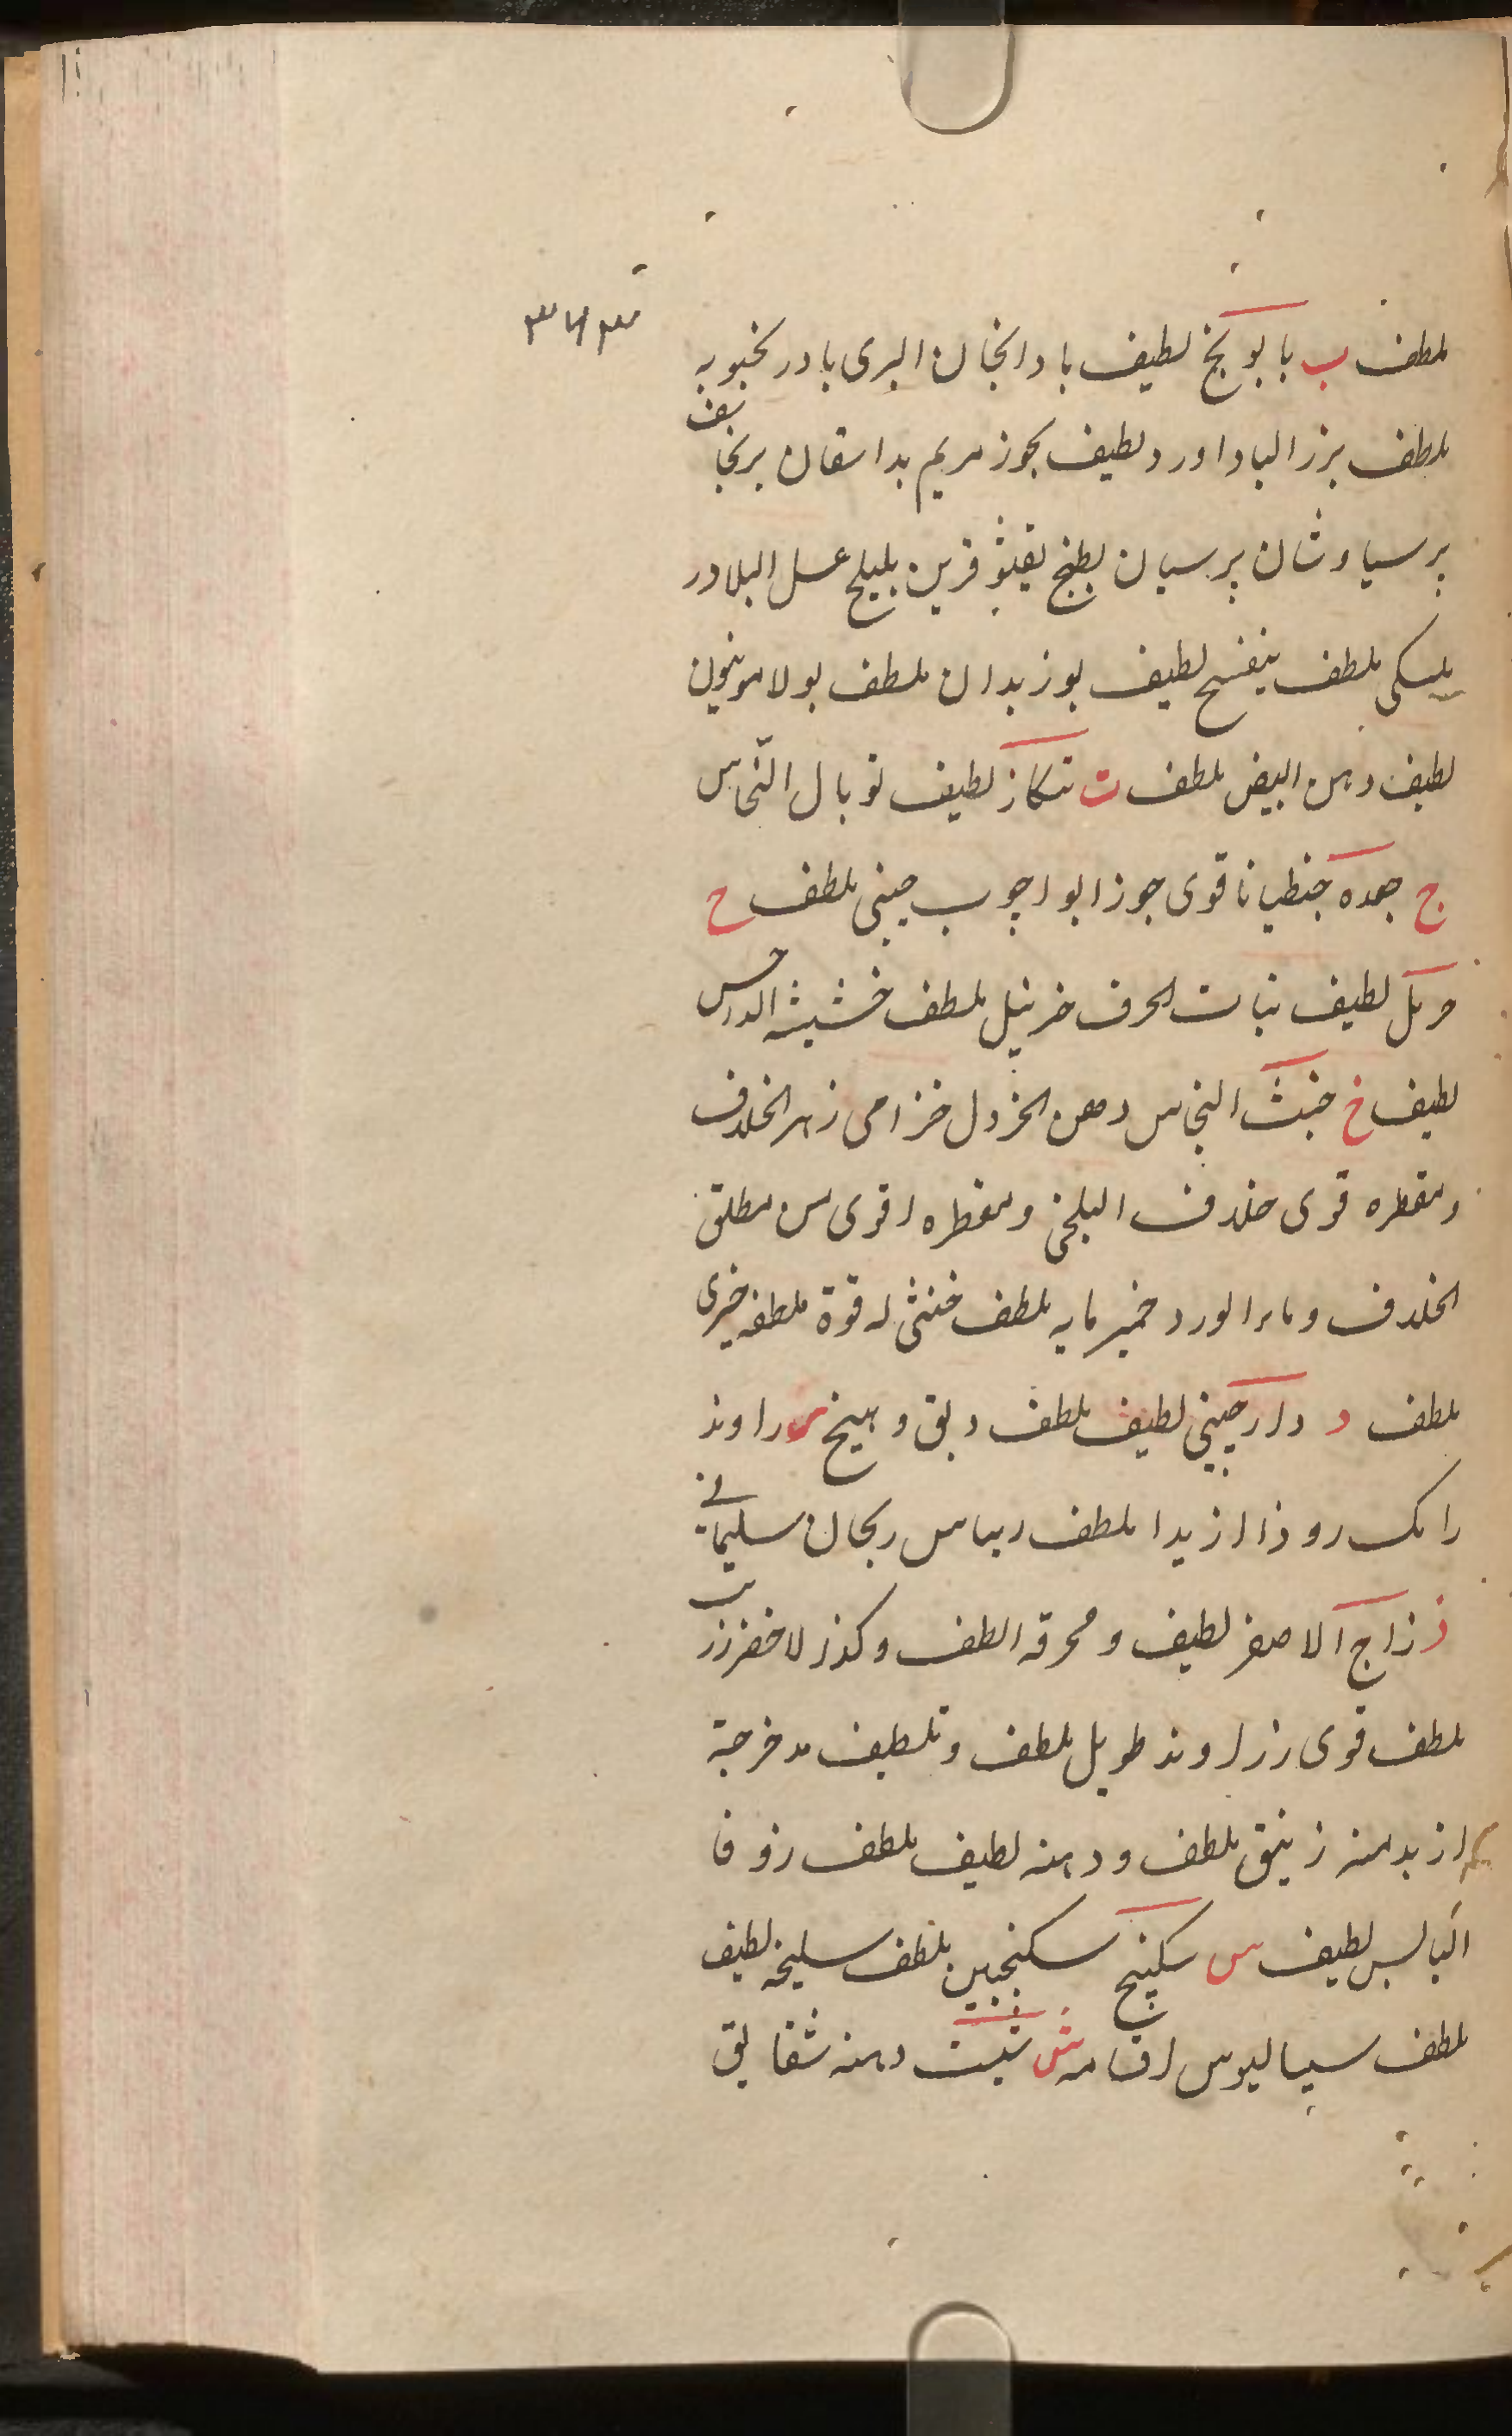 ٣٧٣
ملطف ب بابونج لطيف بادانجان البرى بادرنجبويه
ملطف بزر الباداورد لطيف بخور مريم بداسقان برنجاسف
برسياوشان پرسيان بطيخ بقيثوقرين بليلج عسل البلادر
بلسكى ملطف بنفسج لطيف بوزيدان ملطف بولامونيون
لطيف دهن البيض ملطف ت تنكار لطيف توبال النّحاس
ج جعده جنطيانا قوى جوز ابوا چوب چينى ملطف ح
حرمل لطيف نبات الحرف خرنبل ملطف خشيشه الداحس
لطيف خ خبث النحاس دهن الخردل خزامى زهر الخلاف
ومقطره قوى خلاف البلخى ومقطره اقوى من مطلق
الخلاف وماء الورد خميرمايه ملطف خنثى له قوة ملطفه خيرى
ملطف د دارچينى لطيف ملطف دبق وهيخ ر راوند
رامك روذاارزيدا ملطف ريباس ريحان سليمانى
ز زاج الاصفر لطيف ومحرقه الطف وكذا لاخضر زرنب
ملطف قوى زراوند طويل ملطف وتلطيف مدحرجة
ازيد منه زنبق ملطف ودهنه لطيف ملطف زوفا
اليابس لطيف س سكبينج سكنجبين ملطف سليخه لطيف
ملطف سيساليوس اقسامه ش شبت دهنه شقايق